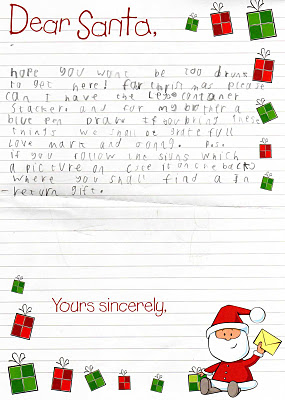 Dear Santa,
hope you wont be too drunk
to get here! for christmas please
can I have the Lego container
stacker. and for my brother a
blue pen draw if you bring these
things we shall be gratefull
love mark and P.s.
if you follow the signs which
a picture on (see it on the back)
where you shall find a In
-return gift.
Yours sincerely,